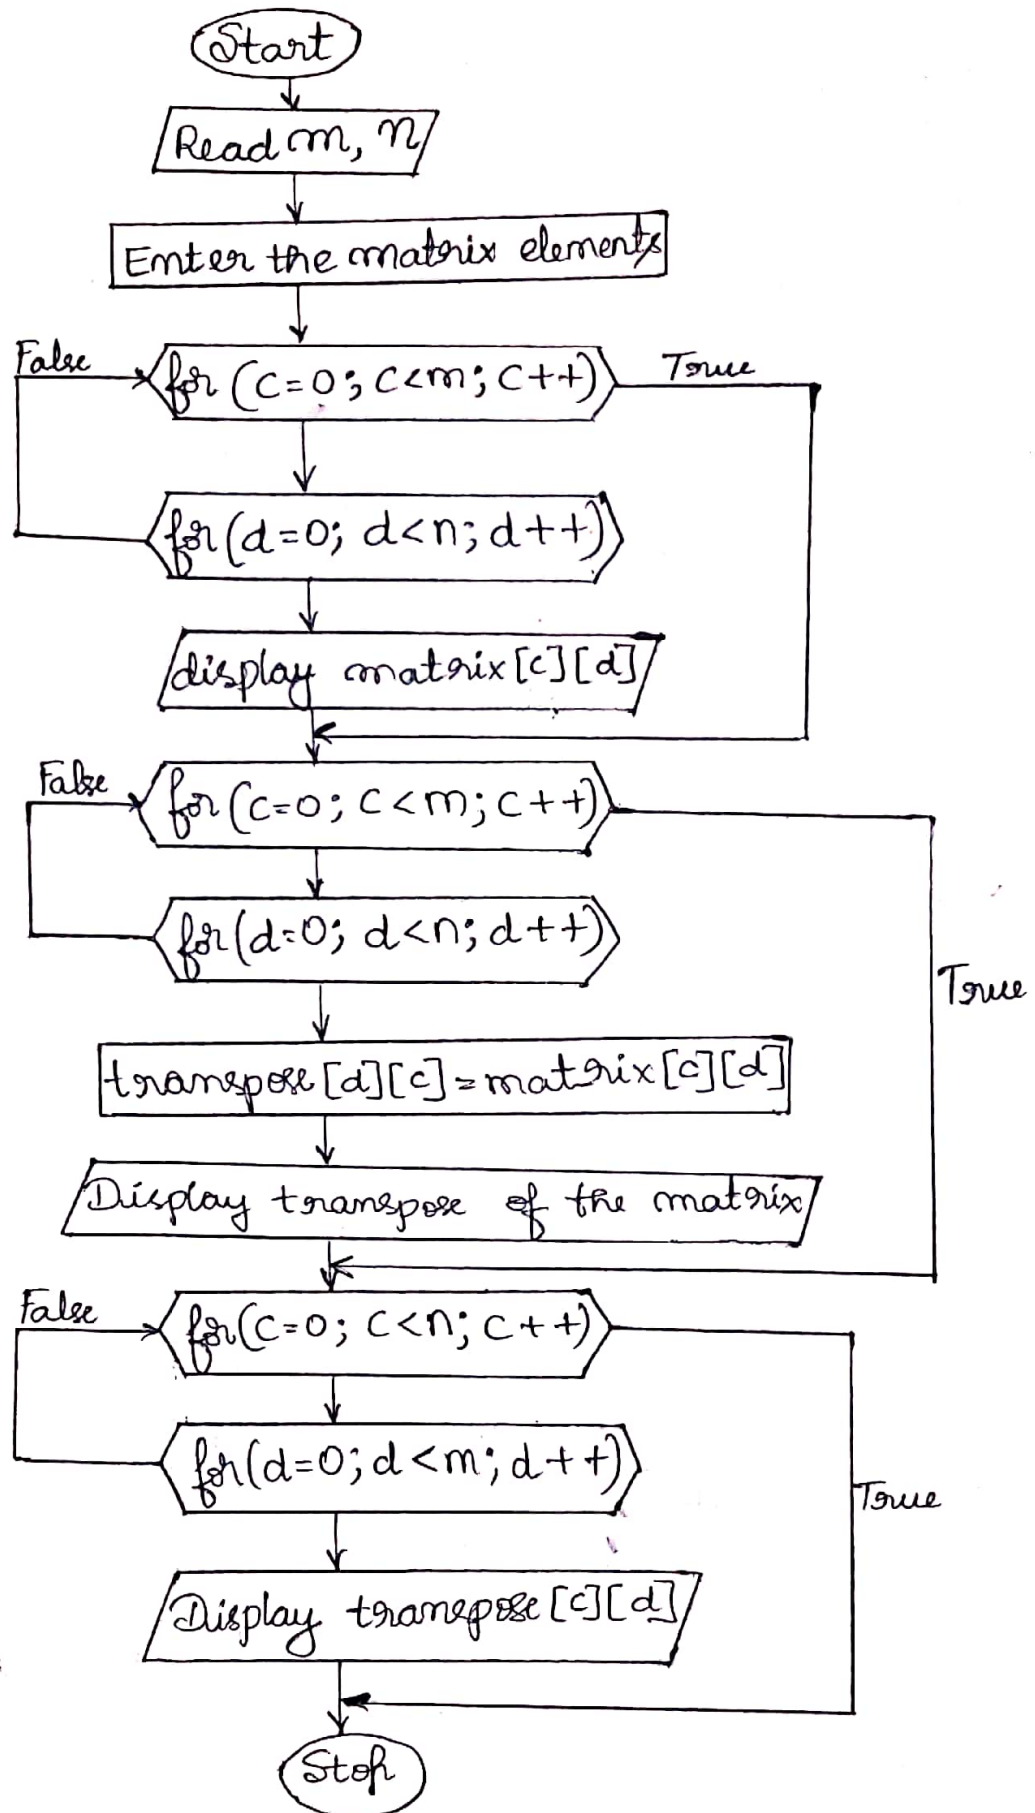 Start
Read m, n
Enter the matrix elements
False
for (c=0; c<m; c++)
True
for(d=0; d<n; d++)
display matrix[c][d]
False
for(c=0; c<m; c++)
for(d=0; d<n; d++)
True
transpose[d][c]=matrix[c][d]
Display transpose of the matrix
False
for(c=0; c<n; c++)
for(d=0; d<m; d++)
True
Display transpose[c][d]
Stop